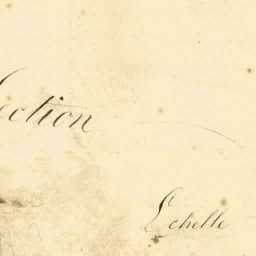 ection
Echelle